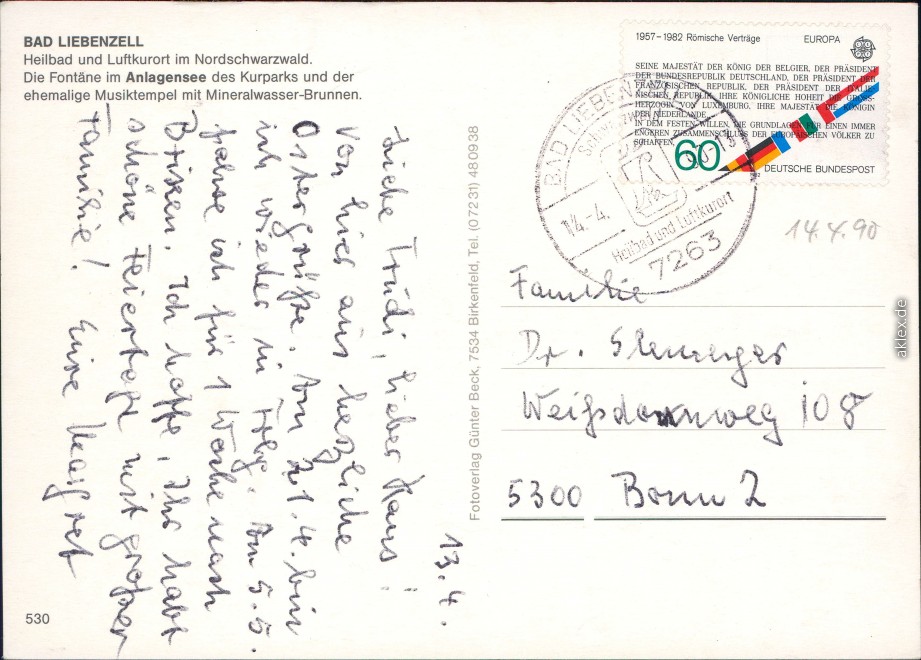 BAD LIEBENZELL
Heilbad und Luftkurort im Nordschwarzwald.
Die Fontäne im Anlagensee des Kurparks und der
ehemalige Musiktempel mit Mineralwasser-Brunnen.
1957–1982 Römische Verträge EUROPA
SEINE MAJESTÄT DER KÖNIG DER BELGIER, DER PRÄSIDENT
DER BUNDESREPUBLIK DEUTSCHLAND, DER PRÄSIDENT DER
FRANZÖSISCHEN REPUBLIK, DER PRÄSIDENT DER ITALIE-
NISCHEN REPUBLIK, IHRE KÖNIGLICHE HOHEIT DIE GROSS-
HERZOGIN VON LUXEMBURG, IHRE MAJESTÄT DIE KÖNIGIN
DER NIEDERLANDE,
IN DEM FESTEN WILLEN, DIE GRUNDLAGEN FÜR EINEN IMMER
ENGEREN ZUSAMMENSCHLUSS DER EUROPÄISCHEN VÖLKER ZU
SCHAFFEN
60
DEUTSCHE BUNDESPOST
BAD LIEBENZELL
14.-4.
Heilbad und Luftkurort
7263
14.4.90
13.4.
Liebe Trudi, lieber Hans!
Von hier aus herzliche
Ostergrüße. Am 21.4. bin
ich wieder in Fbg. Am 5.5.
fahre ich für 1 Woche nach
Brixen. Ich hoffe, Ihr habt
schöne Feiertage mit großer
Familie! Eure Margret
Fotoverlag Günter Beck, 7534 Birkenfeld, Tel. (07231) 480938
Familie
Dr.
Weißdornweg 108
5300 Bonn 2
530
aklex.de